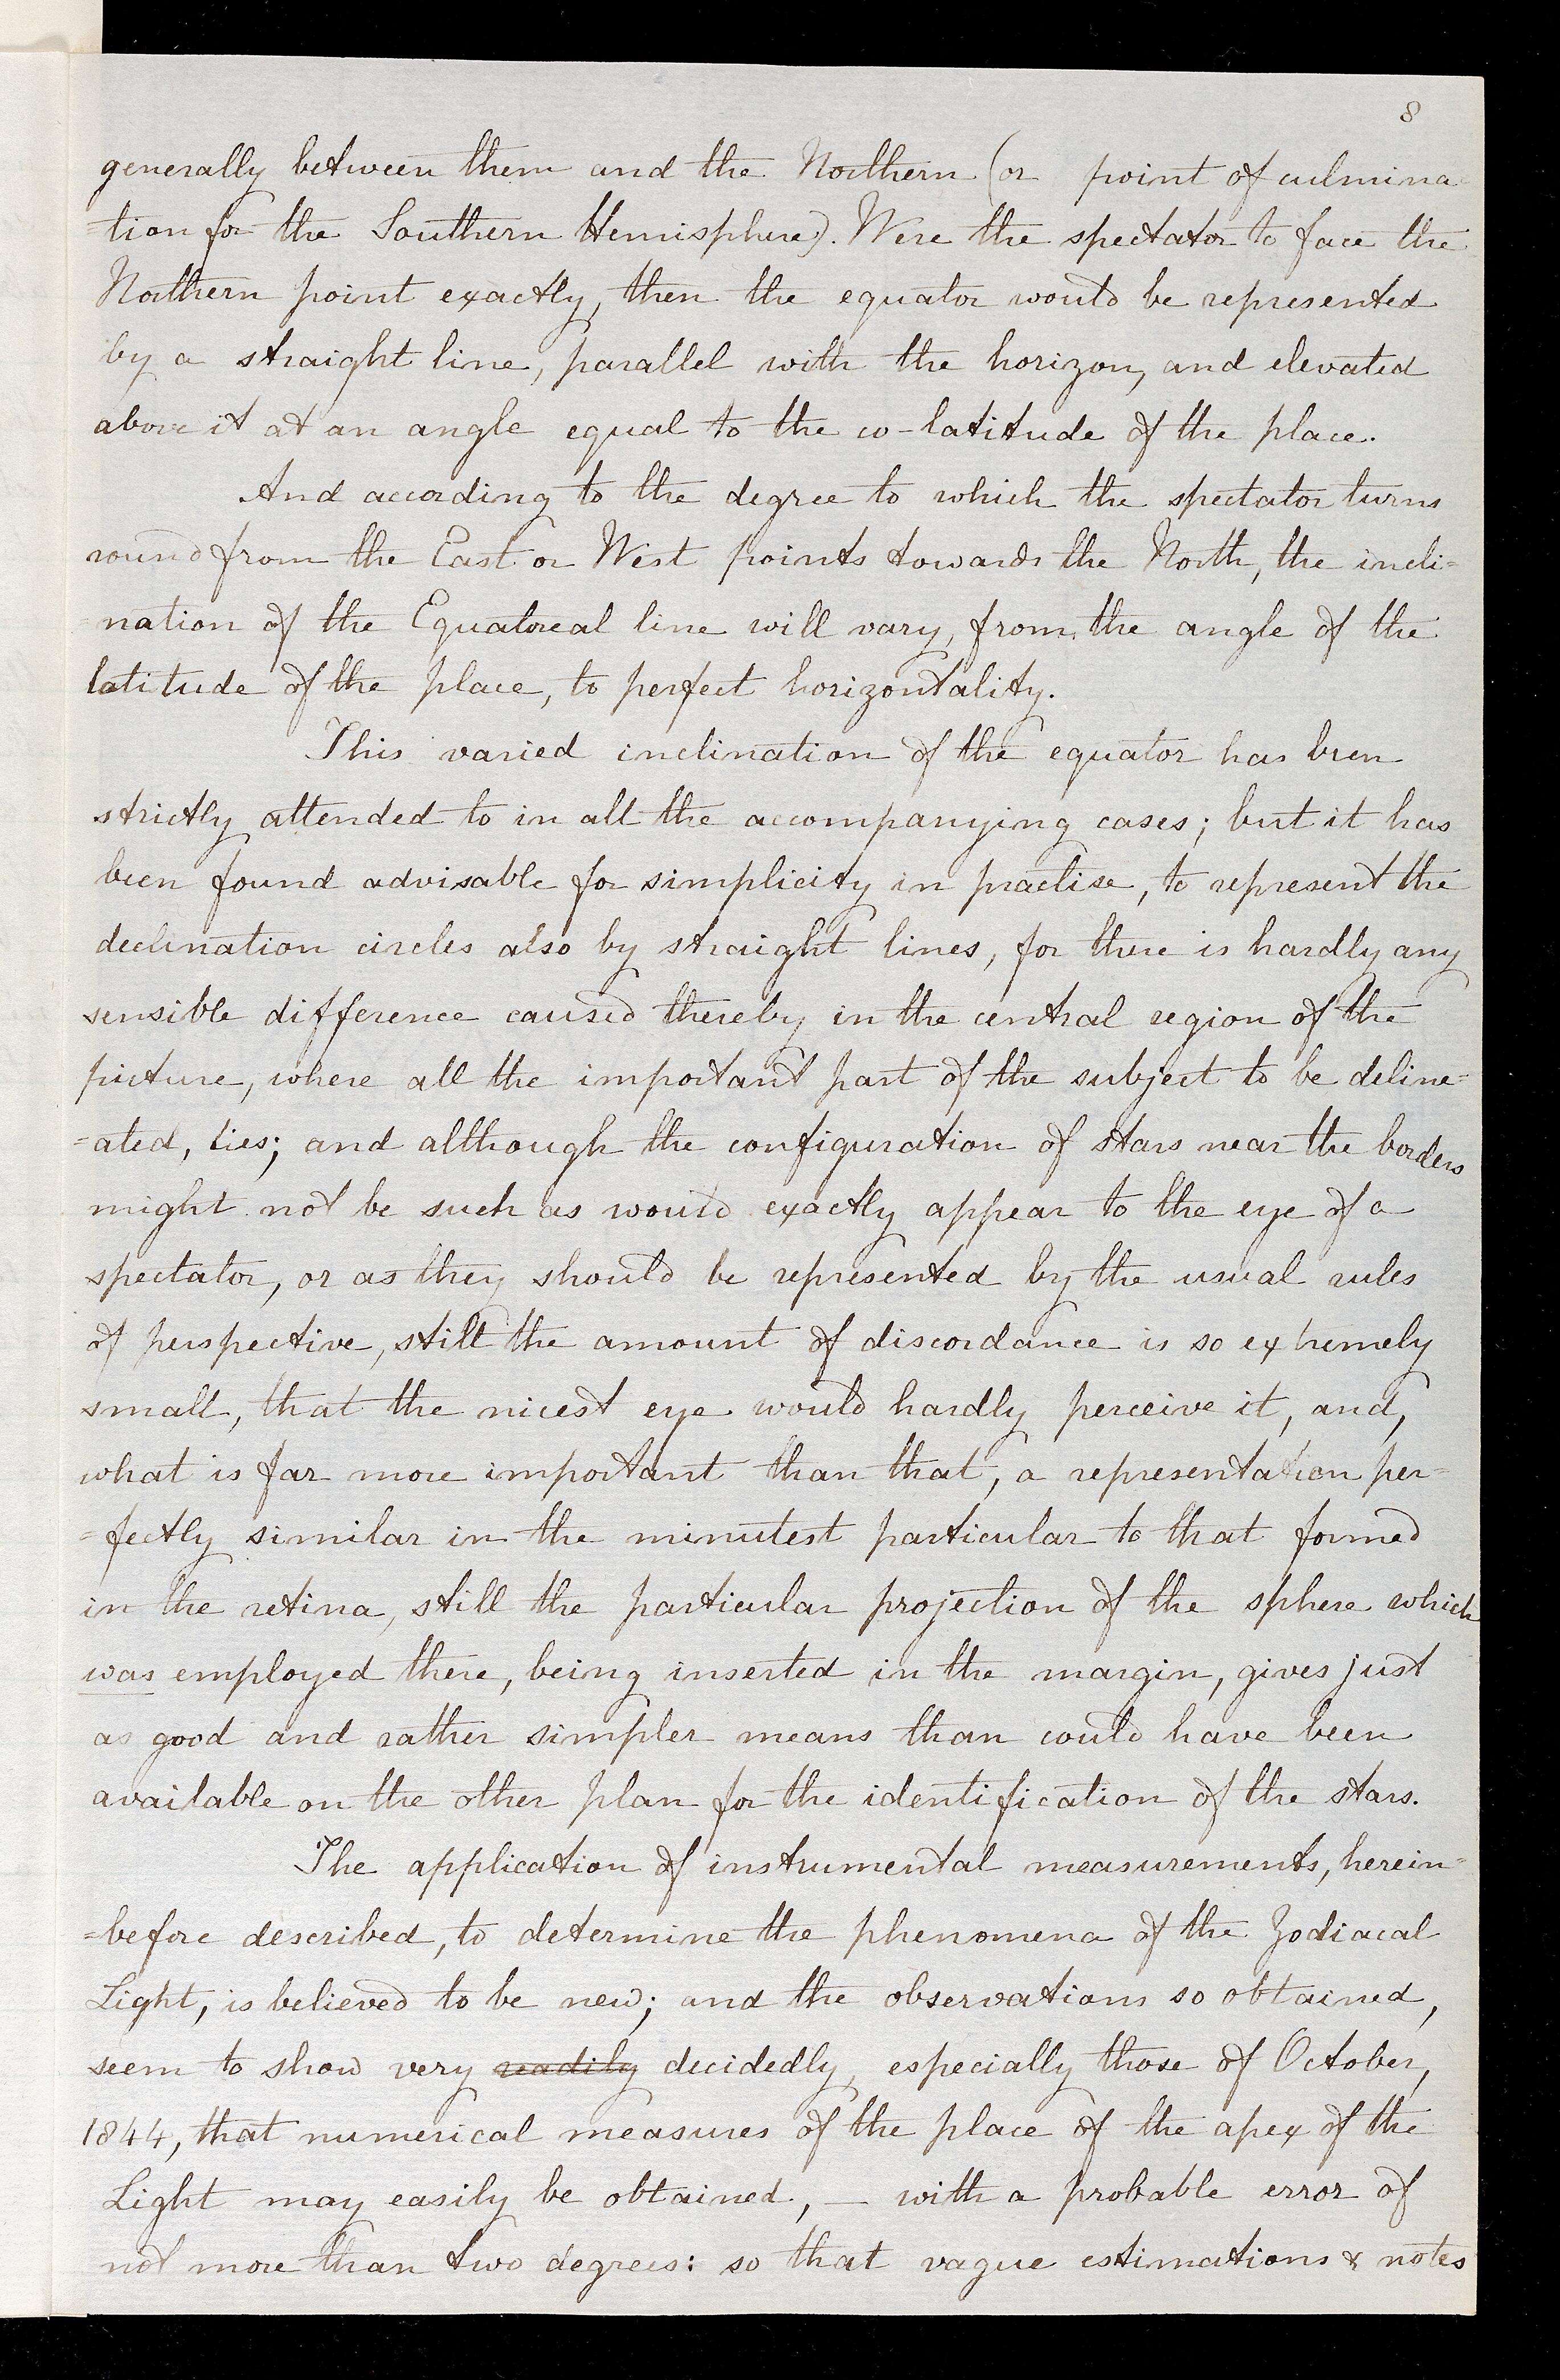 8
generally between them and the Northern (or point of culmina=
=tion for the Southern Hemisphere). Were the spectator to face the
Northern point exactly, then the equator would be represented
by a straight line, parallel with the horizon, and elevated
above it at an angle equal to the co-latitude of the place.
And according to the degree to which the spectator turns
round from the East or West points towards the North, the incli=
=nation of the Equatoreal line will vary, from the angle of the
latitude of the place, to perfect horizontality.
This varied inclination of the equator has been
strictly attended to in all the accompanying cases; but it has
been found advisable for simplicity in practise, to represent the
declination circles also by straight lines, for there is hardly any
sensible difference caused thereby in the central region of the
picture, where all the important part of the subject to be deline=
=ated, lies; and although the configuration of stars near the borders
might not be such as would exactly appear to the eye of a
spectator, or as they should be represented by the usual rules
of perspective, still the amount of discordance is so extremely
small, that the nicest eye would hardly perceive it, and,
what is far more important than that, a representation per=
=fectly similar in the minutest particular to that formed
in the retina, still the particular projection of the sphere which
was employed there, being inserted in the margin, gives just
as good and rather simpler means than could have been
available on the other plan for the identification of the stars.
The application of instrumental measurements, herein=
=before described, to determine the phenomena of the Zodiacal
Light, is believed to be new; and the observations so obtained,
seem to show very readily decidedly, especially those of October,
1844, that numerical measures of the place of the apex of the
Light may easily be obtained, — with a probable error of
not more than two degrees: so that vague estimations & notes